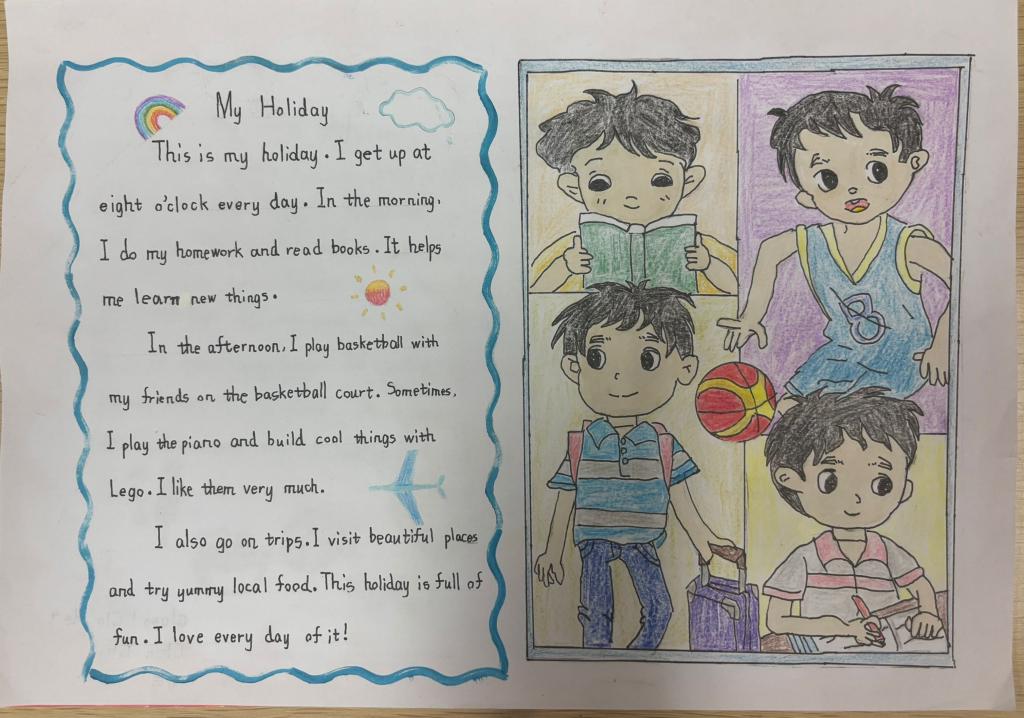 My Holiday
This is my holiday. I get up at
eight o'clock every day. In the morning,
I do my homework and read books. It helps
me learn new things.
In the afternoon, I play basketball with
my friends on the basketball court. Sometimes,
I play the piano and build cool things with
Lego. I like them very much.
I also go on trips. I visit beautiful places
and try yummy local food. This holiday is full of
fun. I love every day of it!